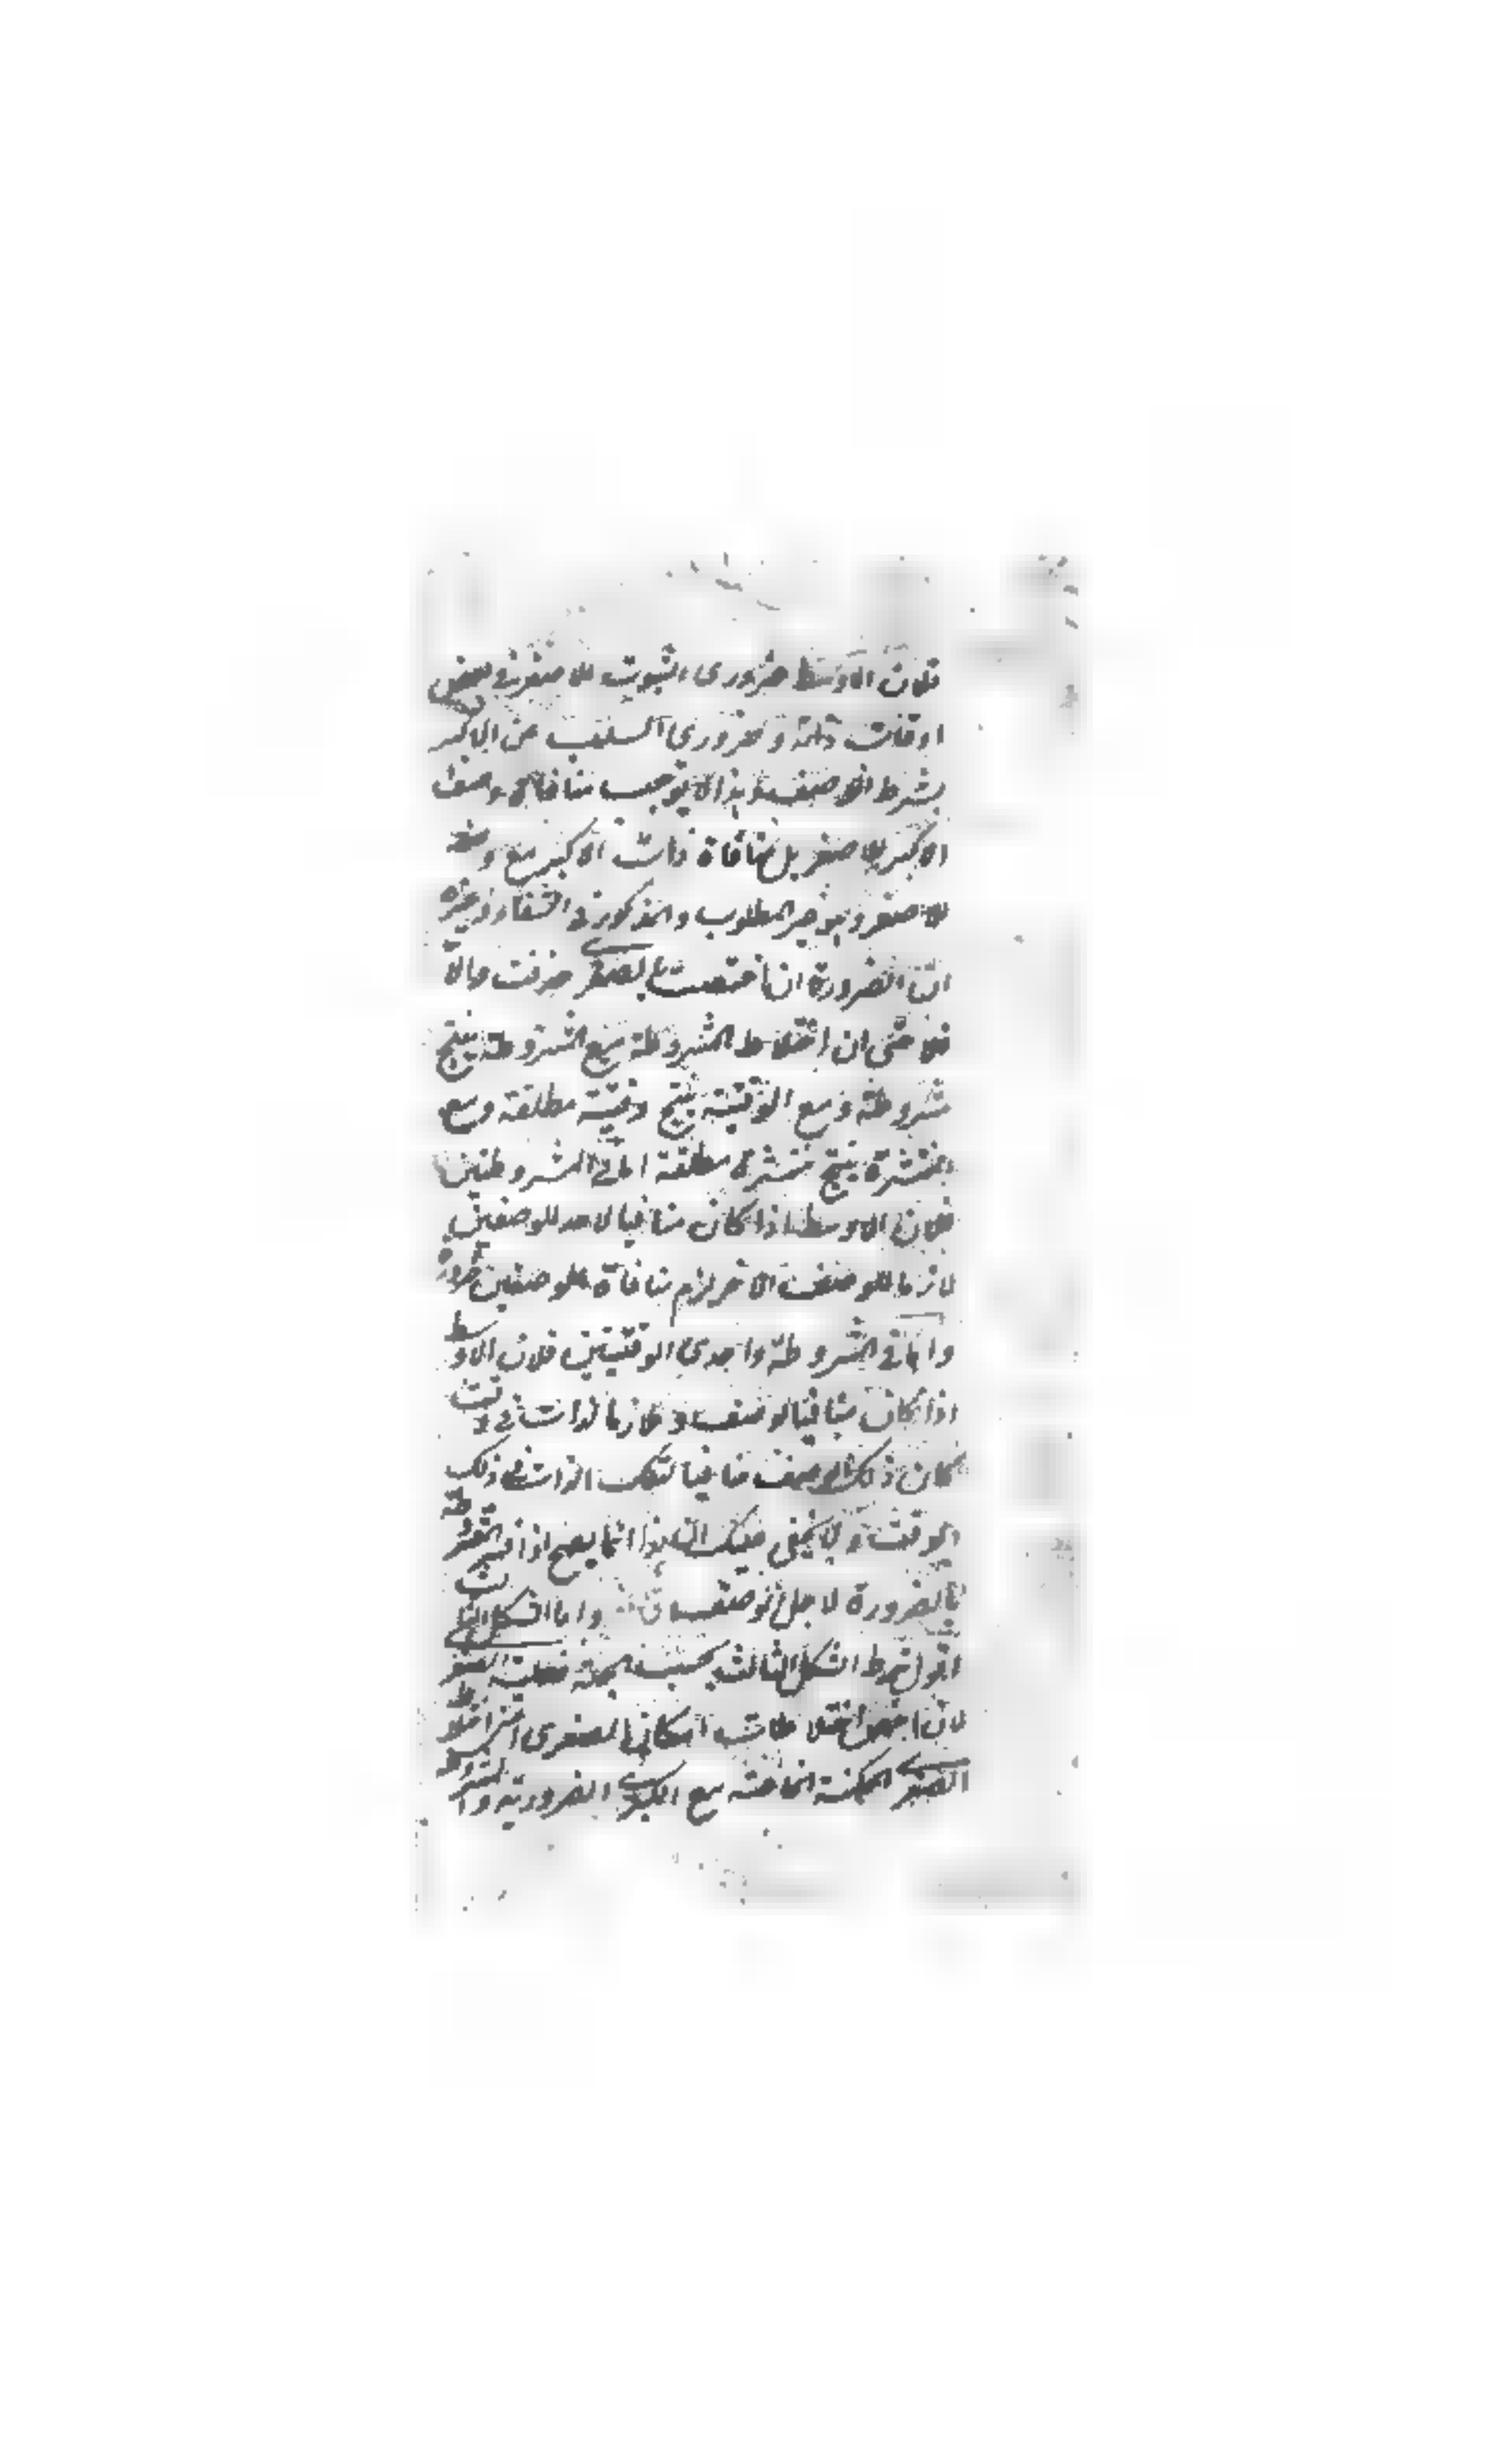 فلان الاوسط ضرورى الثبوت للاصغر فى بعض
اوقات ذاته و ضرورى السلب عن الاكبر
بشرط الوصف وهذا لا يوجب منافاة وصف
الاكبر للاصغر بل منافاة ذات الاكبر مع وصفه
للاصغر وهو غير المطلوب والمذكور فى الشفاء وغيره
ان الضرورة ان اختصت بالصغرى حذفت والا
فلا حتى ان اختلاط المشروطة مع المشروطة ينتج
مشروطة و مع الوقتية ينتج وقتية مطلقة ومع
المنتشرة ينتج منتشرة مطلقة اما فى المشروطتين
فلان الاوسط اذا كان منافيا لاحد الوصفين
لازما للوصف الاخر لزم منافاة الوصفين ضرورة
واما فى المشروطة واحدى الوقتيتين فلان الاوسط
اذا كان منافيا لوصف و لازما لذات فى وقت
كان ذلك الوصف منافيا لتلك الذات فى ذلك
الوقت ولا يخفى عليك ان هذا انما يصح اذا فسر المشروطة
بالضرورة لاجل الوصف قال واما الشكل الثالث
اقول شرط الشكل الثالث بحسب الجهة فعلية الصغرى
لان اخص اختلاطات امكان الصغرى اعنى اختلاط
الصغرى الممكنة الخاصة مع الكبرى الضرورية والمشروطة